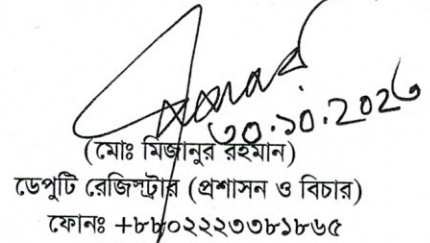 ৩০.১০.২০২৫
(মোঃ মিজানুর রহমান)
ডেপুটি রেজিস্ট্রার (প্রশাসন ও বিচার)
ফোনঃ +৮৮০২২২৩৩৮১৮৬৫